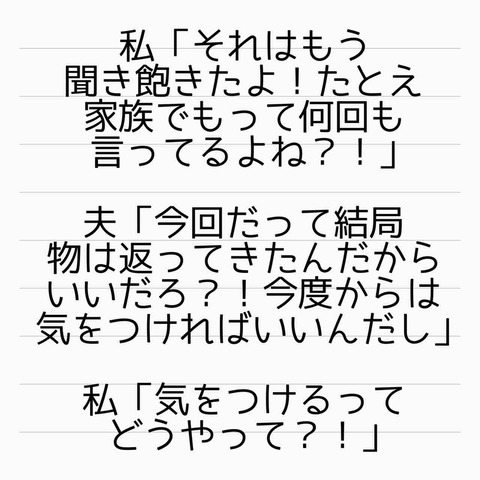 私「それはもう
聞き飽きたよ！たとえ
家族でもって何回も
言ってるよね？！」
夫「今回だって結局
物は返ってきたんだから
いいだろ？！今度からは
気をつければいいんだし」
私「気をつけるって
どうやって？！」